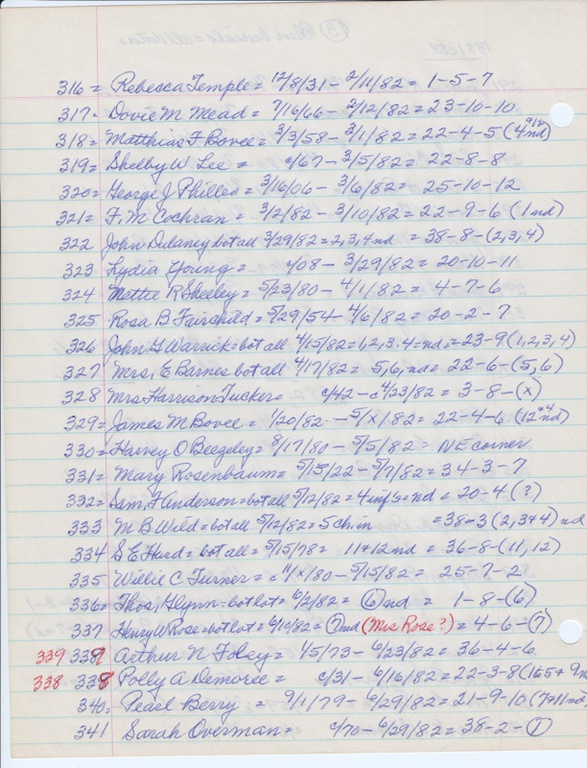 316 = Rebecca Temple = 12/8/31 - 2/11/82 = 1-5-7
317 - Dovie M Mead = 7/16/66 - 2/12/82 = 23-10-10
318 = Matthias F Bovee = 3/3/58 - 3/1/82 = 22-4-5 (4 nd)
319 = Shelby W Lee = c/67 - 3/5/82 = 22-8-8
320 = George J Philleo = 3/16/06 - 3/6/82 = 25-10-12
321 = F. M Cochran = 3/2/82 - 3/10/82 = 22-9-6 (1 nd)
322 John Dulaney bot all 3/29/82 = 2,3,4 nd = 38-8-(2,3,4)
323 Lydia Young = c/08 - 3/29/82 = 20-10-11
324 Mattie R Sheeley = 5/23/80 - 4/1/82 = 4-7-6
325 Rosa B Fairchild = 5/29/54 - 4/6/82 = 20-2-7
326 John G Warnick = bot all 4/15/82 = 1,2,3,4 = nd = 23-9 (1,2,3,4)
327 Mrs, E Barnes bot all 4/17/82 = 5,6, nd = 22-6-(5,6)
328 Mrs Harrison Tucker = c/42 - c 4/23/82 = 3-8-(x)
329 = James M Bovee = 1/20/82 - 5/x/82 = 22-4-6 (12 nd)
330 = Harvey O Beezeley = 8/17/80 - 5/5/82 = NE corner
331 = Mary Rosenbaum = 5/15/22 - 5/7/82 = 34-3-7
332 = Sam F Anderson = bot all 5/12/82 = 4 infs = nd = 20-4 (?)
333 M B Wild = bot all 5/12/82 = 5 ch. in = 38-3 (2,3+4) nd
334 S E Hurd = bot all = 5/15/78 = 11+12 nd = 36-8-(11,12)
335 Willie C Turner = c 11/x/80 - 5/15/82 = 25-7-2
336 = Thos, Glynn = bot lot = 6/2/82 = (6) nd = 1-8-(6)
337 Henry W Rose = bot lot = 6/10/82 = (7) nd (Mrs Rose?) = 4-6-(7)
339 339 Arthur N Foley = 1/5/73 - 6/23/82 = 36-4-6
338 338 Polly A Demorie = c/31 - 6/16/82 = 22-3-8 (1to5+9 nd
340 = Pearl Berry = 9/1/79 - 6/29/82 = 21-9-10 (7+11 nd)
341 Sarah Overman = c/70 - 6/29/82 = 38-2-(1)